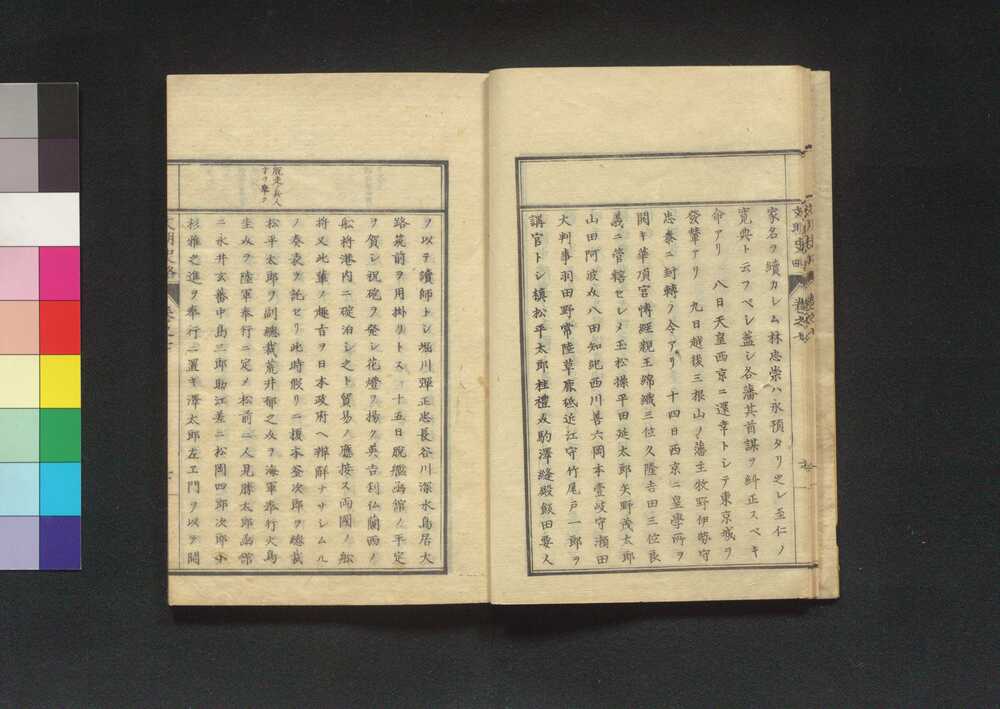 家名ヲ續カレム林忠崇ハ永預タリ之レ至仁ノ
寛典ト云フベシ蓋シ各藩其首謀ヲ糾正スベキ
命アリ 八日天皇西京ニ還幸トシテ東京城ヲ
發輦アリ 九日越後三根山ノ藩主牧野伊勢守
忠泰ニ封轉ノ令アリ 十四日西京ニ皇學所ヲ
開キ華頂宮博經親王錦織三位久隆吉田三位良
義ニ管轄セシメ玉松操平田延太郎矢野茂太郎
山田阿波介八田知紀西川善六岡本壹岐守瀬田
大判事羽田野常陸草鹿砥近江守竹尾戸一郎ヲ
講官トシ槙松平太郎桂禮介駒澤縫殿飯田要人
ヲ以テ讀師トシ堀川彈正忠長谷川深水鳥居大
路筑前ヲ用掛リトス 十五日脱艦凾館ノ平定
ヲ賀シ祝砲ヲ発シ花燈ヲ揚ク英吉利仏蘭西ノ
舩将港内ニ碇泊シ之ト貿易ノ應接ス両國ノ舩
将又此輩ノ趣旨ヲ日本政府ヘ辨解ナサシムル
ノ奏哀ヲ託セリ此時假リニ榎本釜次郎ヲ總裁
脱走兵人
才ヲ擧ク
松平太郎ヲ副總裁荒井郁之介ヲ海軍奉行大鳥
圭介ヲ陸軍奉行ニ定メ松前ニ人見勝太郎凾館
ニ永井玄蕃中島三郎助江差ニ松岡四郎次郎小
杉雅之進ヲ奉行ニ置キ澤太郎左エ門ヲ以テ開